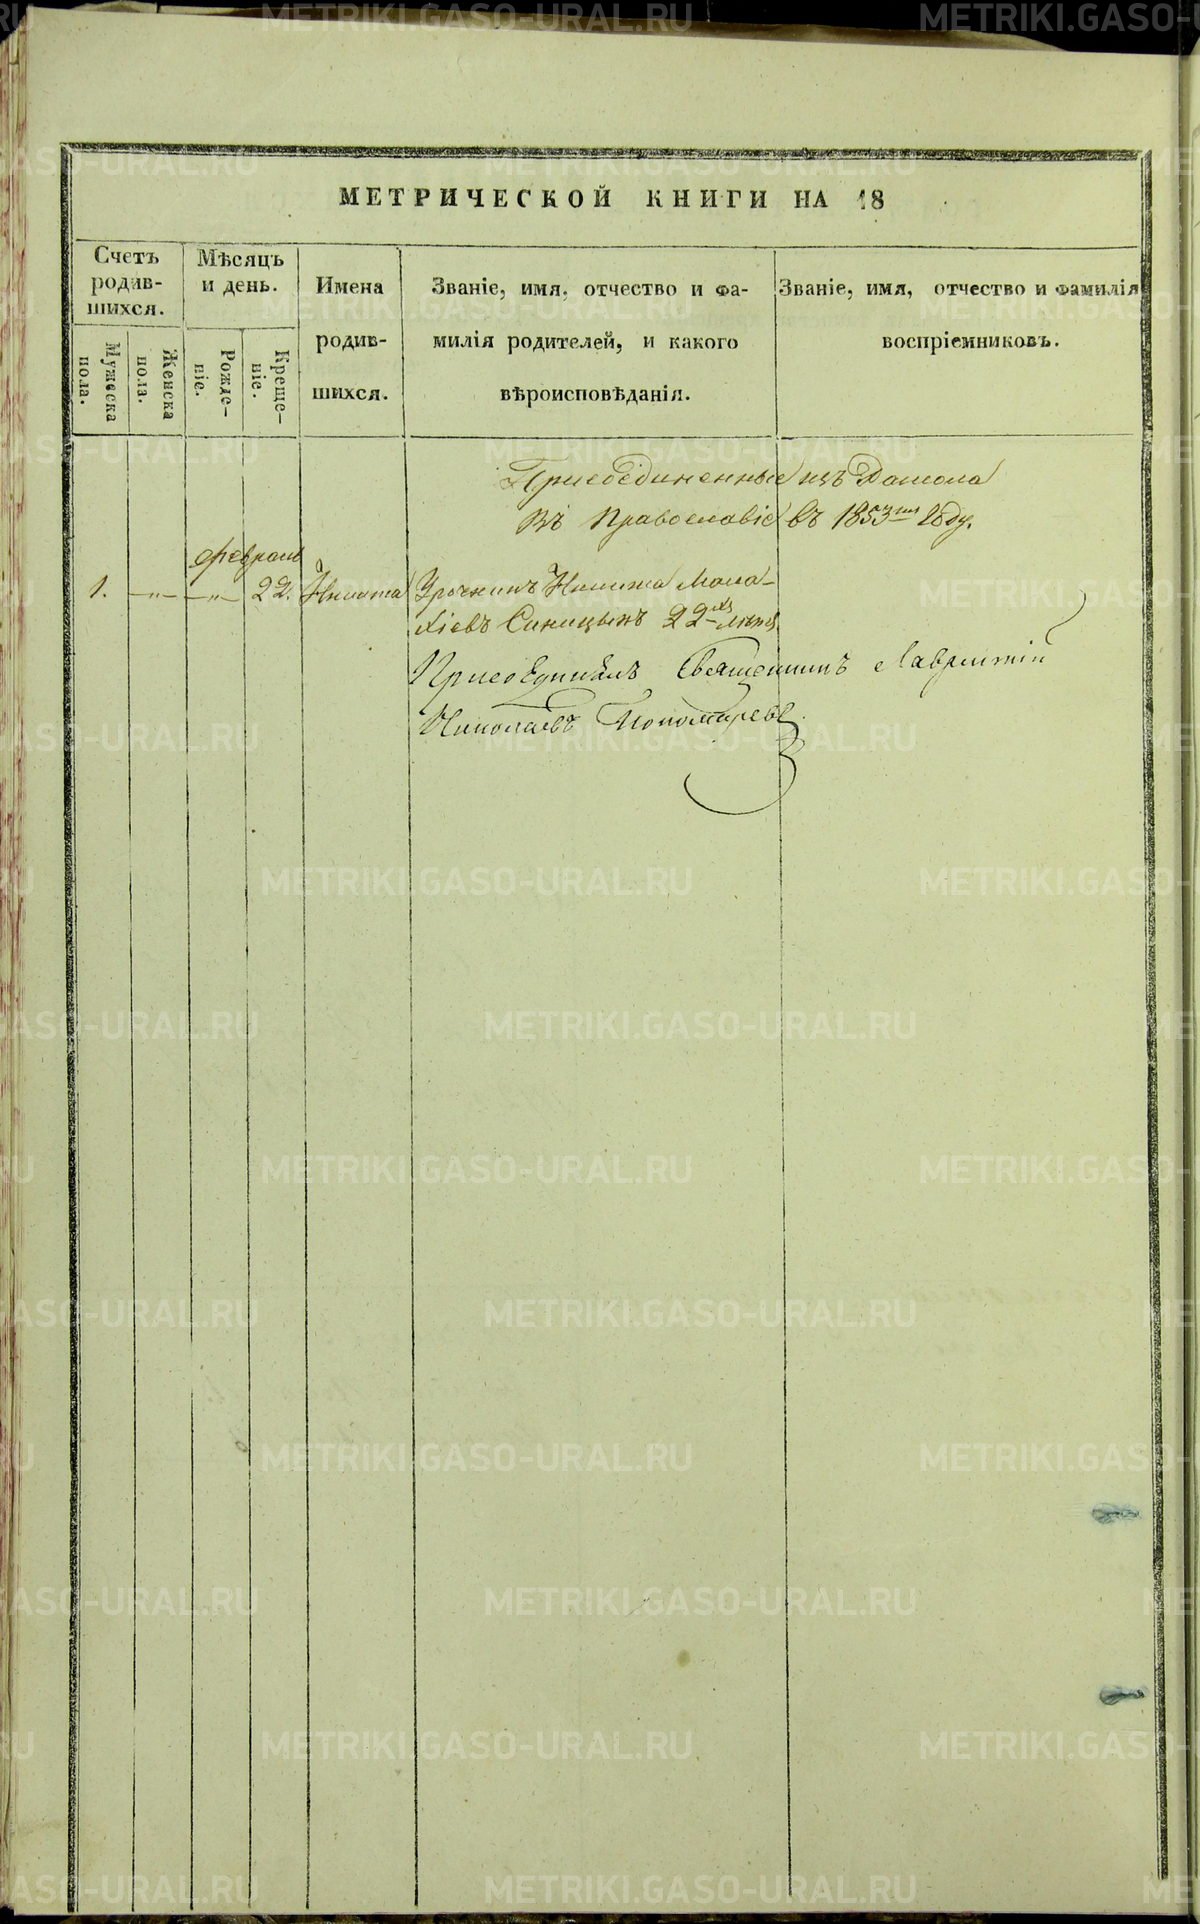 МЕТРИЧЕСКОЙ КНИГИ НА 18
Счетъ родив-шихся.
Мѣсяцъ и день.
Имена родив-шихся.
Званіе, имя, отчество и фа-
милія родителей, и какого
вѣроисповѣданія.
Званіе, имя, отчество и фамилія
воспріемниковъ.
Мужеска пола.
Женска пола.
Рожде-ніе.
Креще-ніе.
Присоединенные изъ Раскола
въ Православіе въ 1853мъ году.
Февраль
1. —„— —„— 22. Никита Урочникъ Никита Мала-
хіевъ Синицынъ 22хъ лѣтъ.
Присоединилъ Священникъ Лаврентій
Николаевъ Пономаревъ.
METRIKI.GASO-URAL.RU